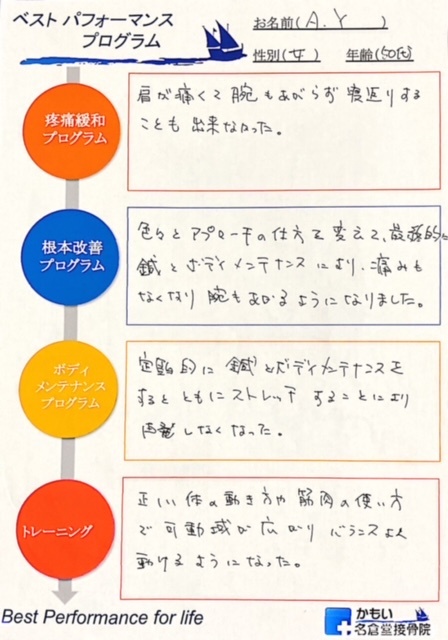 ベスト パフォーマンス
プログラム
お名前( A.Y )
性別(女) 年齢(50代)
疼痛緩和
プログラム
肩が痛くて腕もあがらず寝返りする
ことも出来なかった。
根本改善
プログラム
色々とアプローチの仕方を変えて、最終的に
鍼とボディメンテナンスにより、痛みも
なくなり腕もあがるようになりました。
ボディ
メンテナンス
プログラム
定期的に鍼とボディメンテナンスを
するとともにストレッチすることにより
再発しなくなった。
トレーニング
正しい体の動き方や筋肉の使い方
で可動域が広がりバランスよく
動けるようになった。
Best Performance for life
かもい
名倉堂接骨院